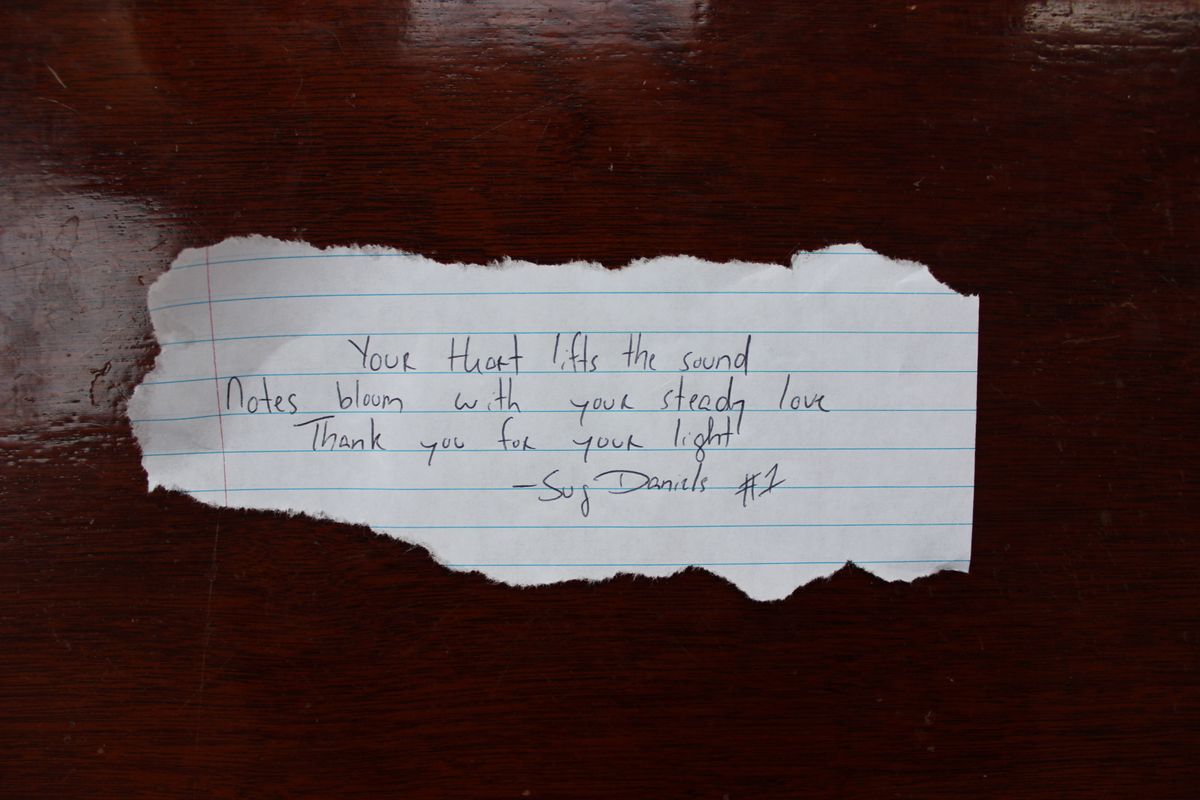 Your Heart lifts the sound
Notes bloom with your steady love
Thank you for your light
-Sug Daniels #1